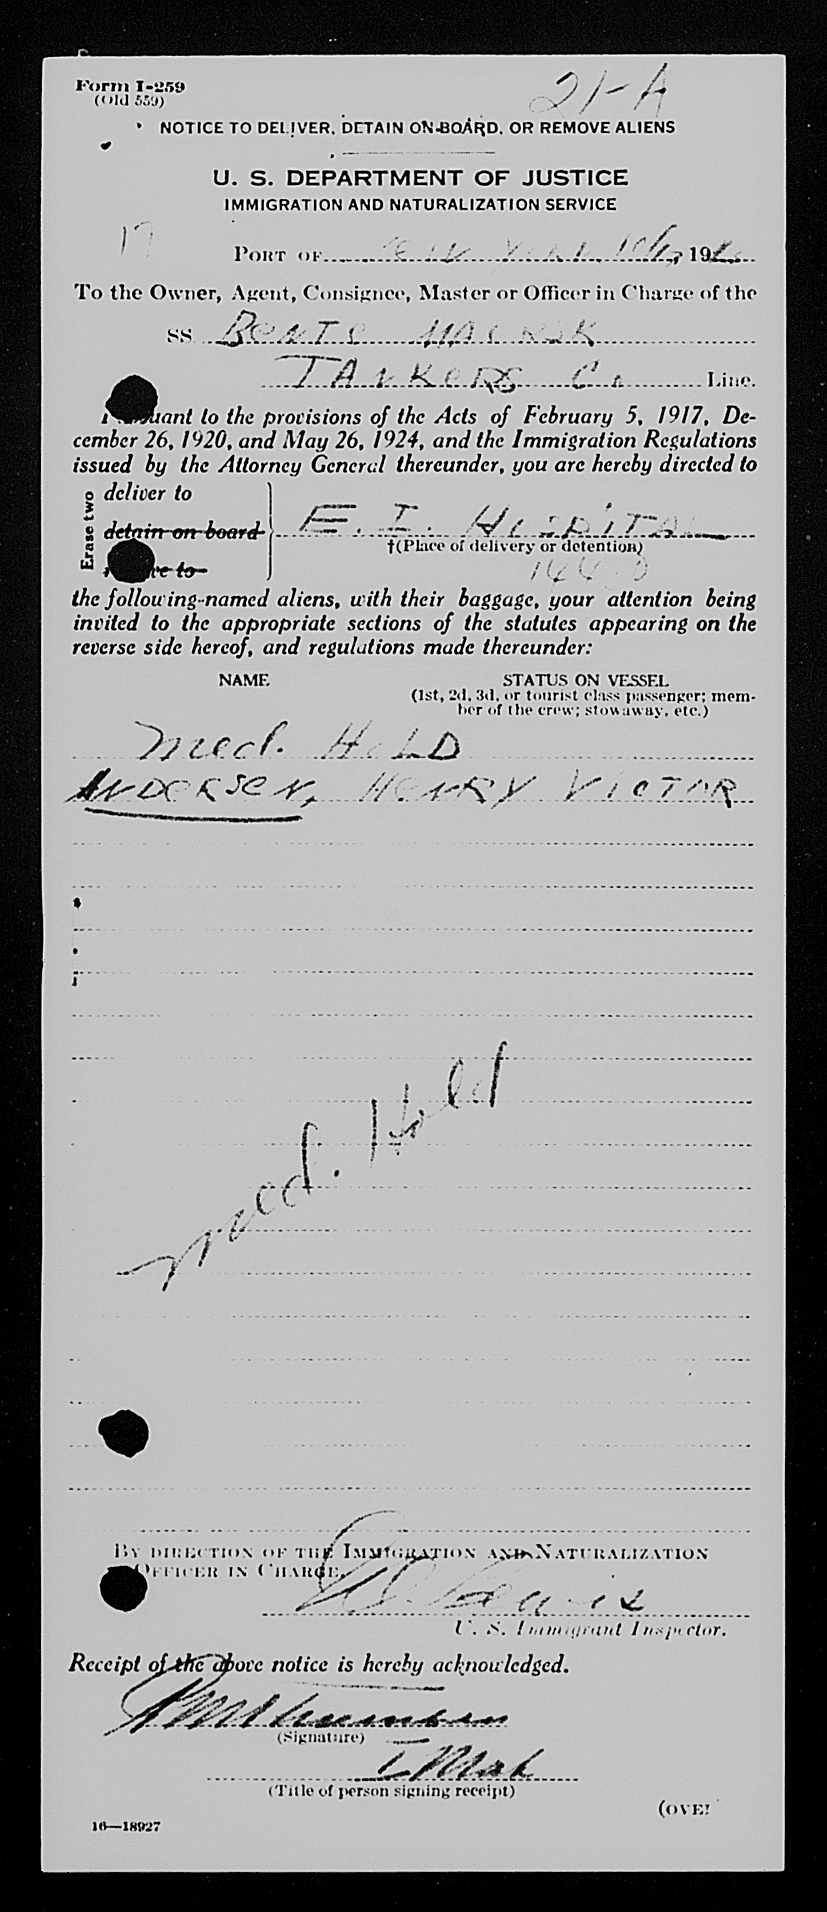 Form I-259
(Old 559)
21-A
NOTICE TO DELIVER, DETAIN ON BOARD, OR REMOVE ALIENS
U. S. DEPARTMENT OF JUSTICE
IMMIGRATION AND NATURALIZATION SERVICE
17
PORT OF New York 19
To the Owner, Agent, Consignee, Master or Officer in Charge of the
SS Bente MAERSK
TANKERS Co Line.
Pursuant to the provisions of the Acts of February 5, 1917, De-
cember 26, 1920, and May 26, 1924, and the Immigration Regulations
issued by the Attorney General thereunder, you are hereby directed to
Erase two
deliver to
detain on board
remove to
E. I. HOSPITAL
†(Place of delivery or detention)
the following-named aliens, with their baggage, your attention being
invited to the appropriate sections of the statutes appearing on the
reverse side hereof, and regulations made thereunder:
NAME STATUS ON VESSEL
(1st, 2d, 3d, or tourist class passenger; mem-
ber of the crew; stowaway, etc.)
Med. HOLD
ANDERSEN, HENRY VICTOR
Med. Hold
BY DIRECTION OF THE IMMIGRATION AND NATURALIZATION
OFFICER IN CHARGE,
U. S. Immigrant Inspector.
Receipt of the above notice is hereby acknowledged.
(Signature)
(Title of person signing receipt)
(OVER
16—18927